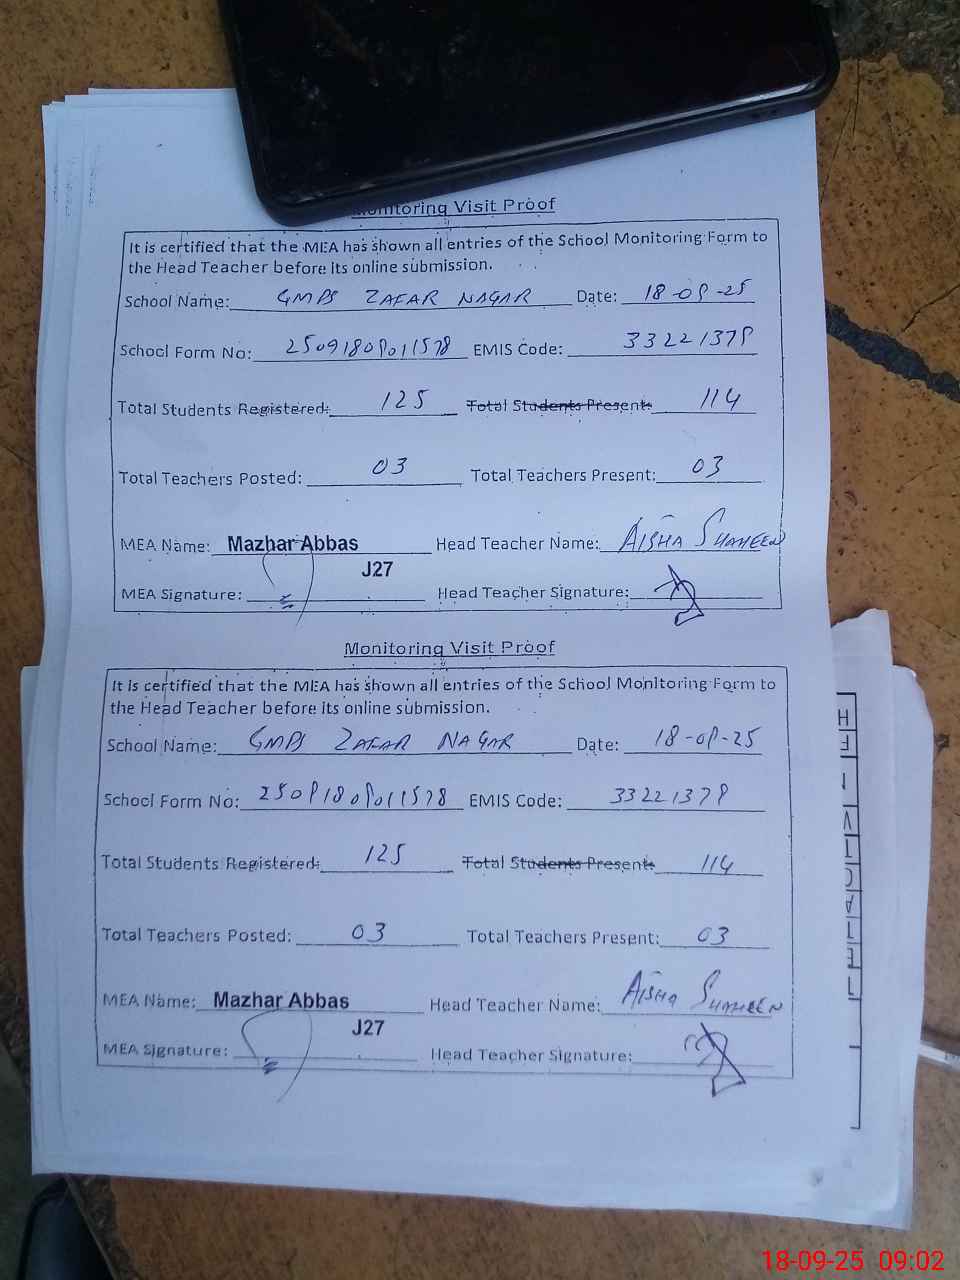 Monitoring Visit Proof
It is certified that the MEA has shown all entries of the School Monitoring Form to
the Head Teacher before its online submission.
School Name: GMPS ZAFAR NAGAR Date: 18-09-25
School Form No: 25091809011578 EMIS Code: 33221379
Total Students Registered: 125 Total Students Present: 114
Total Teachers Posted: 03 Total Teachers Present: 03
MEA Name: Mazhar Abbas Head Teacher Name: AISHA SHAHEEN
J27
MEA Signature: Head Teacher Signature:
Monitoring Visit Proof
It is certified that the MEA has shown all entries of the School Monitoring Form to
the Head Teacher before its online submission.
School Name: GMPS ZAFAR NAGAR Date: 18-09-25
School Form No: 25091809011578 EMIS Code: 33221379
Total Students Registered: 125 Total Students Present: 114
Total Teachers Posted: 03 Total Teachers Present: 03
MEA Name: Mazhar Abbas Head Teacher Name: AISHA SHAHEEN
J27
MEA Signature: Head Teacher Signature:
18-09-25 09:02